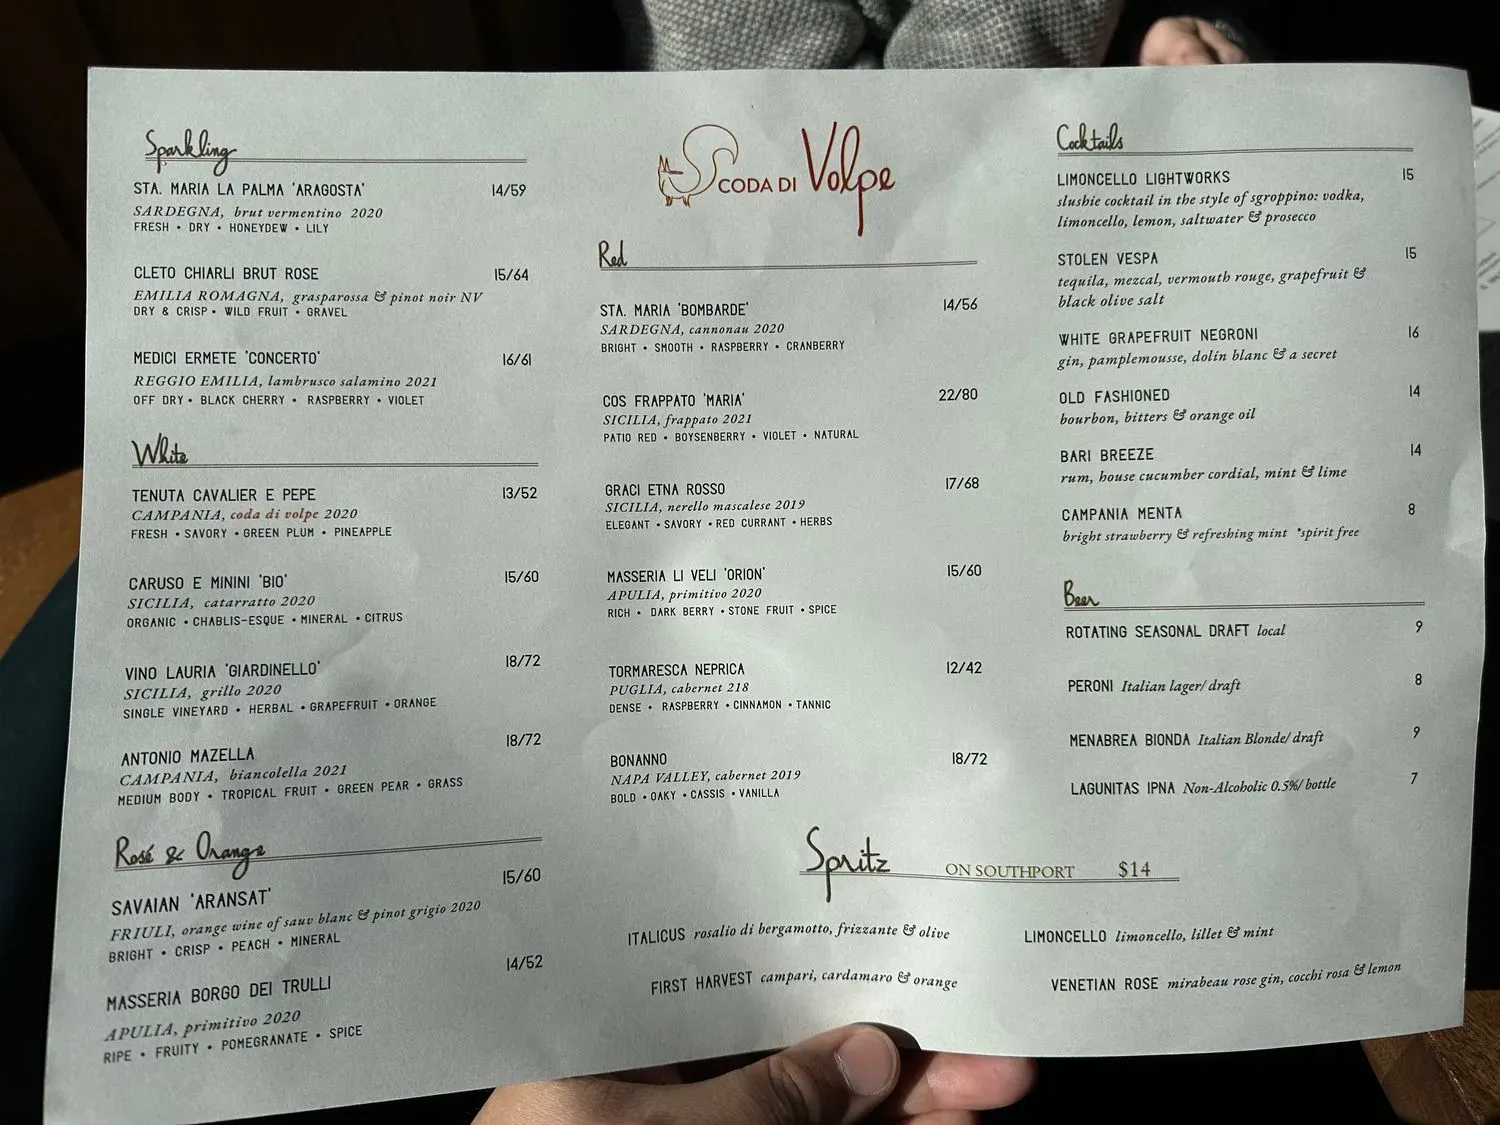 Sparkling
STA. MARIA LA PALMA 'ARAGOSTA' 14/59
SARDEGNA, brut vermentino 2020
FRESH • DRY • HONEYDEW • LILY
CLETO CHIARLI BRUT ROSE 15/64
EMILIA ROMAGNA, grasparossa & pinot noir NV
DRY & CRISP • WILD FRUIT • GRAVEL
MEDICI ERMETE 'CONCERTO' 16/61
REGGIO EMILIA, lambrusco salamino 2021
OFF DRY • BLACK CHERRY • RASPBERRY • VIOLET
White
TENUTA CAVALIER E PEPE 13/52
CAMPANIA, coda di volpe 2020
FRESH • SAVORY • GREEN PLUM • PINEAPPLE
CARUSO E MININI 'BIO' 15/60
SICILIA, catarratto 2020
ORGANIC • CHABLIS-ESQUE • MINERAL • CITRUS
VINO LAURIA 'GIARDINELLO' 18/72
SICILIA, grillo 2020
SINGLE VINEYARD • HERBAL • GRAPEFRUIT • ORANGE
ANTONIO MAZELLA 18/72
CAMPANIA, biancolella 2021
MEDIUM BODY • TROPICAL FRUIT • GREEN PEAR • GRASS
Rosé & Orange
SAVAIAN 'ARANSAT' 15/60
FRIULI, orange wine of sauv blanc & pinot grigio 2020
BRIGHT • CRISP • PEACH • MINERAL
MASSERIA BORGO DEI TRULLI 14/52
APULIA, primitivo 2020
RIPE • FRUITY • POMEGRANATE • SPICE
CODA DI Volpe
Red
STA. MARIA 'BOMBARDE' 14/56
SARDEGNA, cannonau 2020
BRIGHT • SMOOTH • RASPBERRY • CRANBERRY
COS FRAPPATO 'MARIA' 22/80
SICILIA, frappato 2021
PATIO RED • BOYSENBERRY • VIOLET • NATURAL
GRACI ETNA ROSSO 17/68
SICILIA, nerello mascalese 2019
ELEGANT • SAVORY • RED CURRANT • HERBS
MASSERIA LI VELI 'ORION' 15/60
APULIA, primitivo 2020
RICH • DARK BERRY • STONE FRUIT • SPICE
TORMARESCA NEPRICA 12/42
PUGLIA, cabernet 218
DENSE • RASPBERRY • CINNAMON • TANNIC
BONANNO 18/72
NAPA VALLEY, cabernet 2019
BOLD • OAKY • CASSIS • VANILLA
Cocktails
LIMONCELLO LIGHTWORKS 15
slushie cocktail in the style of sgroppino: vodka,
limoncello, lemon, saltwater & prosecco
STOLEN VESPA 15
tequila, mezcal, vermouth rouge, grapefruit &
black olive salt
WHITE GRAPEFRUIT NEGRONI 16
gin, pamplemousse, dolin blanc & a secret
OLD FASHIONED 14
bourbon, bitters & orange oil
BARI BREEZE 14
rum, house cucumber cordial, mint & lime
CAMPANIA MENTA 8
bright strawberry & refreshing mint *spirit free
Beer
ROTATING SEASONAL DRAFT local 9
PERONI Italian lager/ draft 8
MENABREA BIONDA Italian Blonde/ draft 9
LAGUNITAS IPNA Non-Alcoholic 0.5%/ bottle 7
Spritz ON SOUTHPORT $14
ITALICUS rosalio di bergamotto, frizzante & olive
FIRST HARVEST campari, cardamaro & orange
LIMONCELLO limoncello, lillet & mint
VENETIAN ROSE mirabeau rose gin, cocchi rosa & lemon